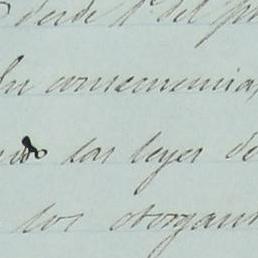 desde 1º del p
En consecuencia,
las leyes de
los otorgan